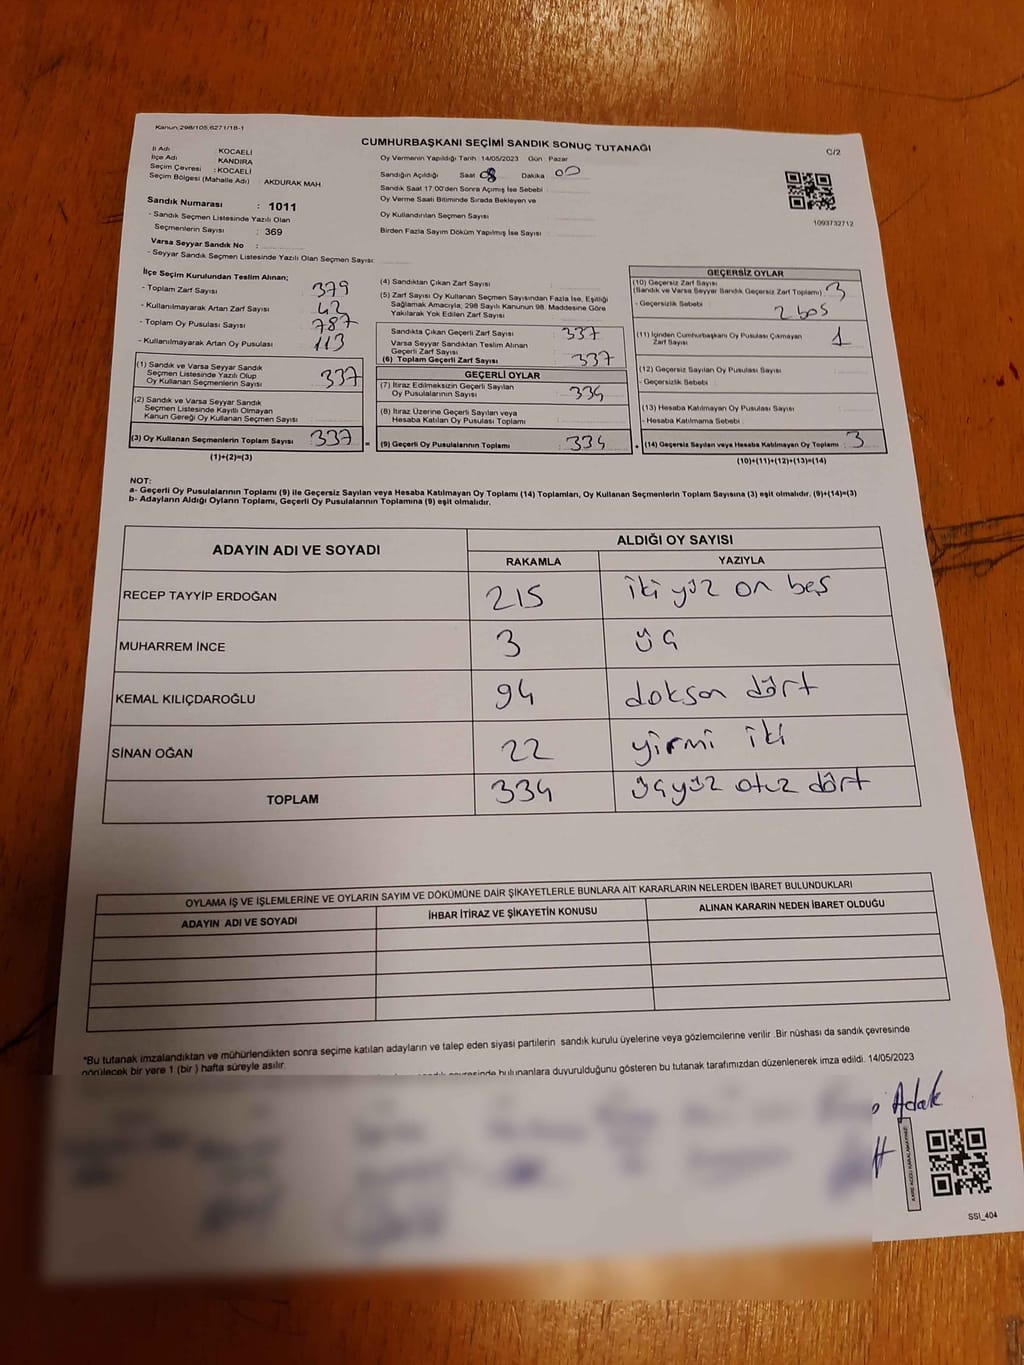 Kanun:298/105,6271/18-1
CUMHURBAŞKANI SEÇİMİ SANDIK SONUÇ TUTANAĞI
C/2
İl Adı : KOCAELİ
İlçe Adı : KANDIRA
Seçim Çevresi : KOCAELİ
Seçim Bölgesi (Mahalle Adı) : AKDURAK MAH
Oy Vermenin Yapıldığı Tarih :14/05/2023 Gün : Pazar
Sandığın Açıldığı Saat 08 Dakika 00
Sandık Saat 17:00'den Sonra Açılmış İse Sebebi :
Oy Verme Saati Bitiminde Sırada Bekleyen ve
Oy Kullandırılan Seçmen Sayısı :
Birden Fazla Sayım Döküm Yapılmış İse Sayısı :
1093732712
Sandık Numarası : 1011
- Sandık Seçmen Listesinde Yazılı Olan
Seçmenlerin Sayısı : 369
Varsa Seyyar Sandık No :
- Seyyar Sandık Seçmen Listesinde Yazılı Olan Seçmen Sayısı:
İlçe Seçim Kurulundan Teslim Alınan;
- Toplam Zarf Sayısı : 379
- Kullanılmayarak Artan Zarf Sayısı : 42
- Toplam Oy Pusulası Sayısı : 787
- Kullanılmayarak Artan Oy Pusulası : 113
(1) Sandık ve Varsa Seyyar Sandık
Seçmen Listesinde Yazılı Olup
Oy Kullanan Seçmenlerin Sayısı : 337
(2) Sandık ve Varsa Seyyar Sandık
Seçmen Listesinde Kayıtlı Olmayan
Kanun Gereği Oy Kullanan Seçmen Sayısı :
(3) Oy Kullanan Seçmenlerin Toplam Sayısı : 337
(1)+(2)=(3)
(4) Sandıktan Çıkan Zarf Sayısı :
(5) Zarf Sayısı Oy Kullanan Seçmen Sayısından Fazla İse, Eşitliği
Sağlamak Amacıyla, 298 Sayılı Kanunun 98. Maddesine Göre
Yakılarak Yok Edilen Zarf Sayısı :
Sandıkta Çıkan Geçerli Zarf Sayısı : 337
Varsa Seyyar Sandıktan Teslim Alınan
Geçerli Zarf Sayısı :
(6) Toplam Geçerli Zarf Sayısı : 337
GEÇERLİ OYLAR
(7) İtiraz Edilmeksizin Geçerli Sayılan
Oy Pusulalarının Sayısı : 334
(8) İtiraz Üzerine Geçerli Sayılan veya
Hesaba Katılan Oy Pusulası Toplamı :
(9) Geçerli Oy Pusulalarının Toplamı : 334
GEÇERSİZ OYLAR
(10) Geçersiz Zarf Sayısı
(Sandık ve Varsa Seyyar Sandık Geçersiz Zarf Toplamı) : 3
- Geçersizlik Sebebi : 2 boş
(11) İçinden Cumhurbaşkanı Oy Pusulası Çıkmayan
Zarf Sayısı : 1
(12) Geçersiz Sayılan Oy Pusulası Sayısı :
- Geçersizlik Sebebi :
(13) Hesaba Katılmayan Oy Pusulası Sayısı :
- Hesaba Katılmama Sebebi :
(14) Geçersiz Sayılan veya Hesaba Katılmayan Oy Toplamı : 3
(10)+(11)+(12)+(13)=(14)
NOT:
a- Geçerli Oy Pusulalarının Toplamı (9) ile Geçersiz Sayılan veya Hesaba Katılmayan Oy Toplamı (14) Toplamları, Oy Kullanan Seçmenlerin Toplam Sayısına (3) eşit olmalıdır. (9)+(14)=(3)
b- Adayların Aldığı Oyların Toplamı, Geçerli Oy Pusulalarının Toplamına (9) eşit olmalıdır.
ADAYIN ADI VE SOYADI ALDIĞI OY SAYISI
RAKAMLA YAZIYLA
RECEP TAYYİP ERDOĞAN 215 iki yüz on beş
MUHARREM İNCE 3 üç
KEMAL KILIÇDAROĞLU 94 doksan dört
SİNAN OĞAN 22 yirmi iki
TOPLAM 334 üçyüz otuz dört
OYLAMA İŞ VE İŞLEMLERİNE VE OYLARIN SAYIM VE DÖKÜMÜNE DAİR ŞİKAYETLERLE BUNLARA AİT KARARLARIN NELERDEN İBARET BULUNDUKLARI
ADAYIN ADI VE SOYADI İHBAR İTİRAZ VE ŞİKAYETİN KONUSU ALINAN KARARIN NEDEN İBARET OLDUĞU
*Bu tutanak imzalandıktan ve mühürlendikten sonra seçime katılan adayların ve talep eden siyasi partilerin sandık kurulu üyelerine veya gözlemcilerine verilir .Bir nüshası da sandık çevresinde
görülecek bir yere 1 (bir ) hafta süreyle asılır.
bulunanlara duyurulduğunu gösteren bu tutanak tarafımızdan düzenlenerek imza edildi. 14/05/2023
Adak
SSI_404